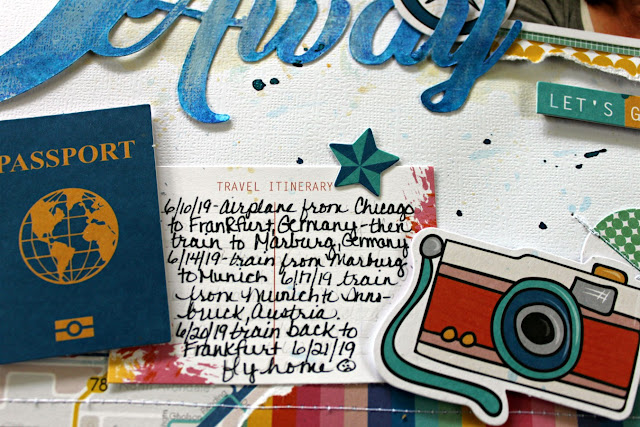 Away
LET'S G
PASSPORT
TRAVEL ITINERARY
6/10/19-airplane from Chicago
to Frankfurt, Germany-then
train to Marburg, Germany
6/14/19-train from Marburg
to Munich 6/17/19 train
from Munich to Inns-
bruck, Austria.
6/20/19 train back to
Frankfurt 6/21/19
fly home
78